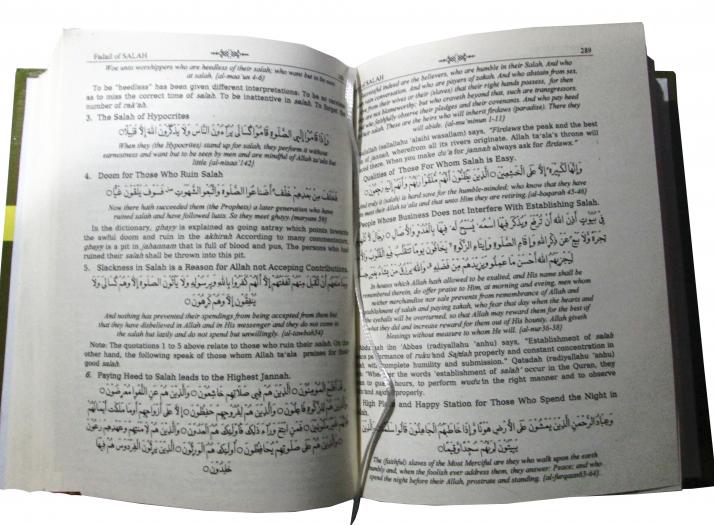 Fadail of SALAH
Woe unto worshippers who are heedless of their salah; who want but to be seen
at salah. [al-maa'un 4-6]
To be "heedless" has been given different interpretations: To be so
as to miss the correct time of salah. To be inattentive in salah. To forget
number of rak'ah.
3. The Salah of Hypocrites
وَإِذَا قَامُوٓا إِلَى الصَّلٰوةِ قَامُوا كُسَالٰى يُرَآءُونَ النَّاسَ وَلَا يَذْكُرُونَ اللّٰهَ إِلَّا قَلِيلًا
When they (the Hypocrites) stand up for salah, they perform it without
earnestness and want but to be seen by men and are mindful of Allah ta'ala but
little [al-nisaa'142]
4. Doom for Those Who Ruin Salah
فَخَلَفَ مِنۢ بَعْدِهِمْ خَلْفٌ أَضَاعُوا الصَّلٰوةَ وَاتَّبَعُوا الشَّهَوٰتِ فَسَوْفَ يَلْقَوْنَ غَيًّا
Now there hath succeeded them (the Prophets) a later generation who have
ruined salah and have followed lusts. So they meet ghayy. [maryam 59]
In the dictionary, ghayy is explained as going astray which points towards
the awful doom and ruin in the akhirah According to many commentators,
ghayy is a pit in jahannam that is full of blood and pus, The persons who had
ruined their salah shall be thrown into this pit.
5. Slackness in Salah is a Reason for Allah not Acceping Contributions.
وَمَا مَنَعَهُمْ أَنْ تُقْبَلَ مِنْهُمْ نَفَقٰتُهُمْ إِلَّآ أَنَّهُمْ كَفَرُوا بِاللّٰهِ وَبِرَسُولِهِ وَلَا يَأْتُونَ الصَّلٰوةَ إِلَّا وَهُمْ كُسَالٰى وَلَا
يُنْفِقُونَ إِلَّا وَهُمْ كٰرِهُونَ
And nothing has prevented their spendings from being accepted from them but
that they have disbelieved in Allah and in His messenger and they do not come to
the salah but lazily and do not spend but unwillingly. [al-tawbah54]
Note: The quotations 1 to 5 above relate to those who ruin their salah. On the
other hand, the following speak of those whom Allah ta'ala praises for their
good salah.
6. Paying Heed to Salah leads to the Highest Jannah.
قَدْ أَفْلَحَ الْمُؤْمِنُونَ الَّذِينَ هُمْ فِي صَلَاتِهِمْ خَاشِعُونَ وَالَّذِينَ هُمْ عَنِ اللَّغْوِ مُعْرِضُونَ
وَالَّذِينَ هُمْ لِلزَّكٰوةِ فَاعِلُونَ وَالَّذِينَ هُمْ لِفُرُوجِهِمْ حٰفِظُونَ إِلَّا عَلٰٓى أَزْوَاجِهِمْ أَوْ مَا مَلَكَتْ أَيْمَانُهُمْ
وَالَّذِينَ هُمْ عَلٰى صَلَوٰتِهِمْ يُحَافِظُونَ أُولٰٓئِكَ هُمُ الْوٰرِثُونَ الَّذِينَ يَرِثُونَ الْفِرْدَوْسَ هُمْ فِيهَا
خٰلِدُونَ
SALAH 289
indeed are the believers, who are humble in their Salah. And who
conversation. And who are payers of zakah. And who abstain from sex,
from their wives or their (slaves) that their right hands possess, for then
are no blameworthy; but who craveth beyond that, such are transgressors.
faithfully observe their pledges and their covenants. And who pay heed
salah. These are the heirs who will inherit firdaws (paradise). There they
will abide. [al-mu'minun 1-11]
(sallallahu 'alaihi wasallam) says, "Firdaws the peak and the best
of jannah, wherefrom all its rivers originate. Allah ta'ala's throne will
there. When you make du'a for jannah always ask for firdaws."
Qualities of Those For Whom Salah is Easy.
وَإِنَّهَا لَكَبِيرَةٌ إِلَّا عَلَى الْخٰشِعِينَ الَّذِينَ يَظُنُّونَ أَنَّهُمْ مُلٰقُوا رَبِّهِمْ وَأَنَّهُمْ إِلَيْهِ رٰجِعُونَ
truly it (salah) is hard save for the humble-minded; who know that they have
meet their Allah ta'ala and that unto Him they are retiring. [al-baqarah 45-46]
People Whose Business Does not Interfere With Establishing Salah.
فِي بُيُوتٍ أَذِنَ اللّٰهُ أَنْ تُرْفَعَ وَيُذْكَرَ فِيهَا اسْمُهُ يُسَبِّحُ لَهُ فِيهَا بِالْغُدُوِّ وَالْآصَالِ رِجَالٌ لَا تُلْهِيهِمْ
تِجَارَةٌ وَلَا بَيْعٌ عَنْ ذِكْرِ اللّٰهِ وَإِقَامِ الصَّلٰوةِ وَإِيتَآءِ الزَّكٰوةِ يَخَافُونَ يَوْمًا تَتَقَلَّبُ فِيهِ الْقُلُوبُ
لِيَجْزِيَهُمُ اللّٰهُ أَحْسَنَ مَا عَمِلُوا وَيَزِيدَهُمْ مِنْ فَضْلِهِ وَاللّٰهُ يَرْزُقُ مَنْ يَشَآءُ
In houses which Allah hath allowed to be exalted; and His name shall be
remembered therein, do offer praise to Him, at morning and eveing, men whom
neither merchandize nor sale prevents from remembrance of Allah and
establishment of salah and paying zakah, who fear that day when the hearts and
the eyeballs will be overturned, so that Allah may reward them for the best of
what they did and increase reward for them out of His bounty. Allah giveth
blessings without measure to whom He will. [al-nur36-38]
ibn 'Abbas (radiyallahu 'anhu) says, "Establishment of salah
performance of ruku' and Sajdah properly and constant concentration in
with complete humility and submission." Qatadah (radiyallahu 'anhu)
the words 'establishment of salah' occur in the Quran, they
to guard hours, to perform wudu in the right manner and to observe
and sajdah properly.
High Place and Happy Station for Those Who Spend the Night in
وَعِبَادُ الرَّحْمٰنِ الَّذِينَ يَمْشُونَ عَلَى الْأَرْضِ هَوْنًا وَإِذَا خَاطَبَهُمُ الْجَاهِلُونَ قَالُوا سَلٰمًا
يَبِيتُونَ لِرَبِّهِمْ سُجَّدًا وَقِيَامًا
The (faithful) slaves of the Most Merciful are they who walk upon the earth
humbly and, when the foolish ever address them, they answer: Peace; and who
spend the night before their Allah, prostrate and standing. [al-furqaan63-64].